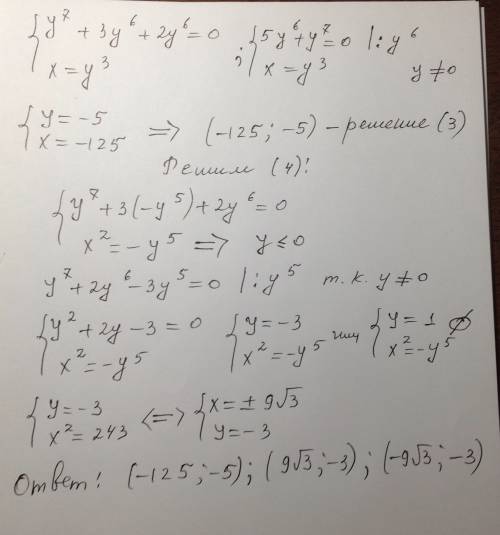 { y⁷ + 3y⁶ + 2y⁶ = 0 ; { 5y⁶ + y⁷ = 0 |: y⁶
x = y³ x = y³ y ≠ 0
{ y = -5
x = -125 => (-125; -5) - решение (3)
Решим (4)!
{ y⁷ + 3(-y⁵) + 2y⁶ = 0
x² = -y⁵ => y ≤ 0
y⁷ + 2y⁶ - 3y⁵ = 0 |: y⁵ т.к. y ≠ 0
{ y² + 2y - 3 = 0 { y = -3 или { y = 1 ∅
x² = -y⁵ x² = -y⁵ x² = -y⁵
{ y = -3 <=> { x = ± 9√3
x² = 243 y = -3
Ответ: (-125; -5); (9√3; -3); (-9√3; -3)